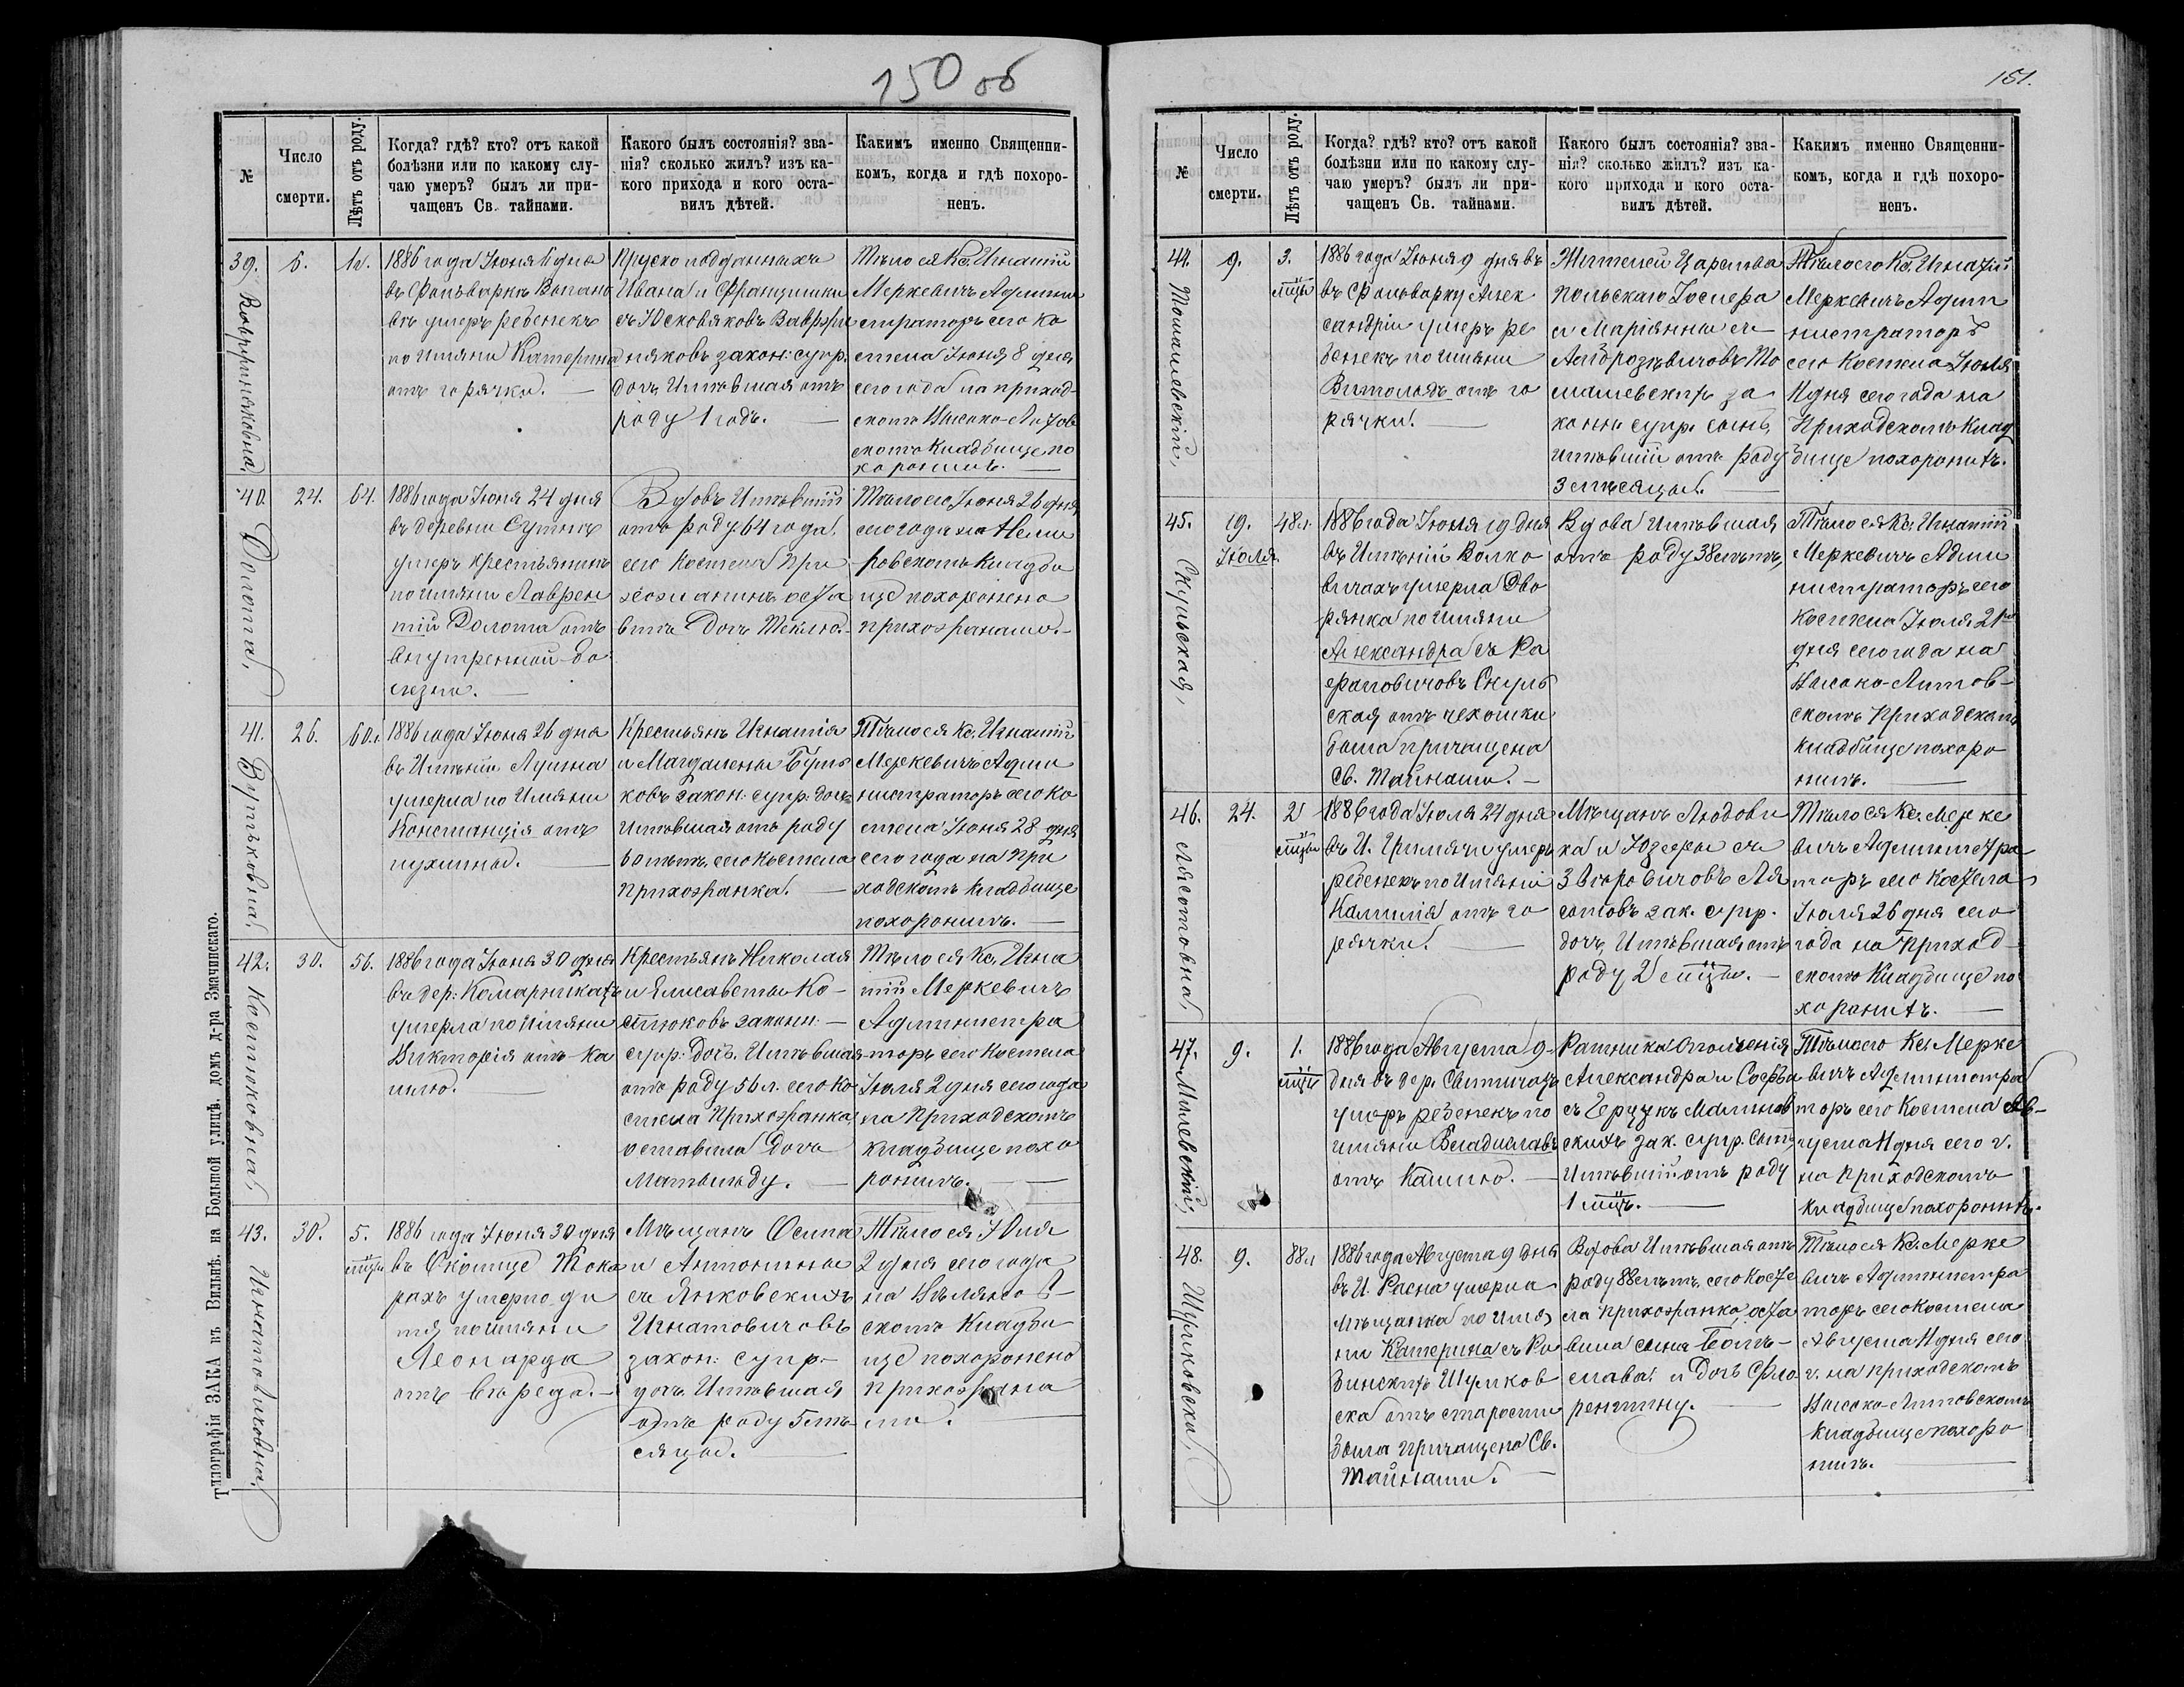 150 об
№
Число
смерти.
Лѣтъ отъ роду.
Когда? гдѣ? кто? отъ какой
болѣзни или по какому слу-
чаю умеръ? былъ ли при-
чащенъ Св. тайнами.
Какого былъ состоянія? зва-
нія? сколько жилъ? изъ ка-
кого прихода и кого оста-
вилъ дѣтей.
Какимъ именно Священни-
комъ, когда и гдѣ похоро-
ненъ.
39.
6.
1г.
1886 года Іюня 6 дня
въ Фольваркѣ
умеръ ребенекъ
по имяни Катерина
отъ горячки.
Пруско подданныхъ
Ивана и Францишки
съ Юсковяковъ
няковъ закон: супр.
дочь Имѣвшая отъ
роду 1 годъ.
Тѣло ея Кс. Игнатій
Меркевичъ Админи
стпраторъ сего Ко
стела Іюня 8 дня
сего года на приход-
скомъ Высоко-Литов
скомъ Кладбище по
хоронилъ.
40.
Долота,
24.
64.
1886 года Іюня 24 дня
въ деревни
умеръ крестьянинъ
по имяни Лаврен
тій Долота отъ
внутренной бо
лезни.
Вдовъ Имѣвшій
отъ роду 64 года,
сего Костела При
хожанинъ оста
вилъ Дочь Теклю.
Тѣло его Іюня 26 дня
сего года на Неми
ровскомъ Кладби
ще похоронено
прихожанами.
41.
26.
60.
1886 года Іюня 26 дня
въ Имѣніи
умерла по Имяни
Констанція отъ
пухлины.
Крестьянъ Игнатія
и Магдалены Буть
ковъ закон: супр: дочь
Имѣвшая отъ роду
60 лѣтъ, сего Костела
прихожанка.
Тѣло ея Кс. Игнатій
Меркевичъ Адми
нистраторъ сего Ко
стела Іюня 28 дня
сего года на При
ходскомъ Кладбище
похоронилъ.
42.
Костюковна,
30.
56.
1886 года Іюня 30 дня
въ дер: Комарникахъ
умерла по Имяни
Викторія отъ ка
шлю.
Крестьянъ Николая
и Елисаветы Ко-
стюковъ законн:
супр: Дочь. Имѣвшая
отъ роду 56 л. сего Ко
стела Прихожанка,
оставила дочь
Матыльду.
Тѣло ея Кс. Игна
тій Меркевичъ
Администра
торъ сего Костела
Іюля 2 дня сего года
на Приходскомъ
Кладбище похо
ронилъ.
43.
Игнатовичовна,
30.
5.
мѣцы
1886 года Іюня 30 дня
въ Околице Тока
рахъ умерло ди
тя по имяни
Леонарда
отъ вереда.
Мѣщанъ Осипа
и Антонины
съ Янковскихъ
Игнатовичовъ
закон: супр:
дочь Имѣвшая
отъ роду 5 мѣ
сяцы.
Тѣло ея Юля
2 дня сего года
на
скомъ Кладби
ще похоронено
прихожана
ми.
Типографія ЗАКА въ Вильнѣ. на Большой улицѣ, домъ д-ра Змачинскаго.
151.
№
Число
смерти.
Лѣтъ отъ роду.
Когда? гдѣ? кто? отъ какой
болѣзни или по какому слу-
чаю умеръ? былъ ли при-
чащенъ Св. тайнами.
Какого былъ состоянія? зва-
нія? сколько жилъ? изъ ка-
кого прихода и кого оста-
вилъ дѣтей.
Какимъ именно Священни-
комъ, когда и гдѣ похоро-
ненъ.
44.
Томашевскій,
9.
3.
мѣцы
1886 года Іюня 9 дня въ
въ Фольварку Алек
сандріи умеръ ре
бенекъ по имяни
Витольдъ отъ го
рячки.
Жителей Царства
Польскаго
и Маріянны съ
Томашевскихъ за
конн. супр. сынъ,
имѣвшій отъ роду
3 мѣсяцы.
Тѣло его Кс. Игнатій
Меркевичъ Адми
нистраторъ
сего Костела Іюня
11 дня сего года на
Приходскомъ Клад
бище похоронилъ.
45.
Скульская,
19.
Іюля.
48 л.
1886 года Іюня 19 дня
въ Имѣніи Волко
вичахъ умерла Дво
рянка по Имяни
Александра съ
Скуль
ская отъ чехошки
была причащена
Св. Тайнами.
Вдова Имѣвшая
отъ роду 38 лѣтъ,
Тѣло ея Кс. Игнатій
Меркевичъ Адми
нистраторъ сего
Костела Іюля 21го
дня сего года на
Высоко-Литов-
скомъ Приходскомъ
Кладбище похоро
нилъ.
46.
24.
2
мѣцы
1886 года Іюля 24 дня
въ И. умеръ
ребенекъ по Имяни
Калимія отъ го
рячки.
Мѣщанъ Людови
ка и Юзефы съ
зак. супр.
дочь, Имѣвшая отъ
роду 2 мѣцы.
Тѣло ея Кс. Мерке
вичъ Администра
торъ сего Костела
Іюля 26 дня сего
года на Приход-
скомъ Кладбище по
хоронилъ.
47.
9.
1.
мѣцъ
1886 года Августа 9
дня въ дер. Свитичахъ
умеръ ребенекъ по
имяни Владиславъ
отъ кашлю.
Ратника Ополченія
Александра и Софьи
зак. супр. Сынъ,
Имѣвшій отъ роду
1 мѣцъ.
Тѣло его Кс. Мерке
вичъ Администра
торъ сего Костела Ав-
густа 11 дня сего г.
на Приходскомъ
Кладбище похоронилъ.
48.
9.
88 л
1886 года Августа 9 дня
въ И. Расна умерла
мѣщанка по имя
ни Катерина съ
ска отъ старости
была причащена Св.
Тайнами.
Вдова Имѣвшая отъ
роду 88 лѣтъ, сего Косте
ла прихожанка, оста
вила сына Боле-
слава и Дочь Фло
рентину.
Тѣло ея Кс. Мерке
вичъ Администра
торъ сего Костела
Августа 11 дня сего
г. на приходскомъ
Высоко-Литовскомъ
Кладбище похоро
нилъ.